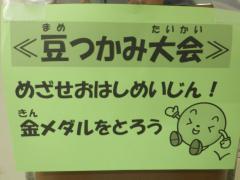 まめ たいかい
≪豆つかみ大会≫
めざせおはしめいじん！
きん
金メダルをとろう